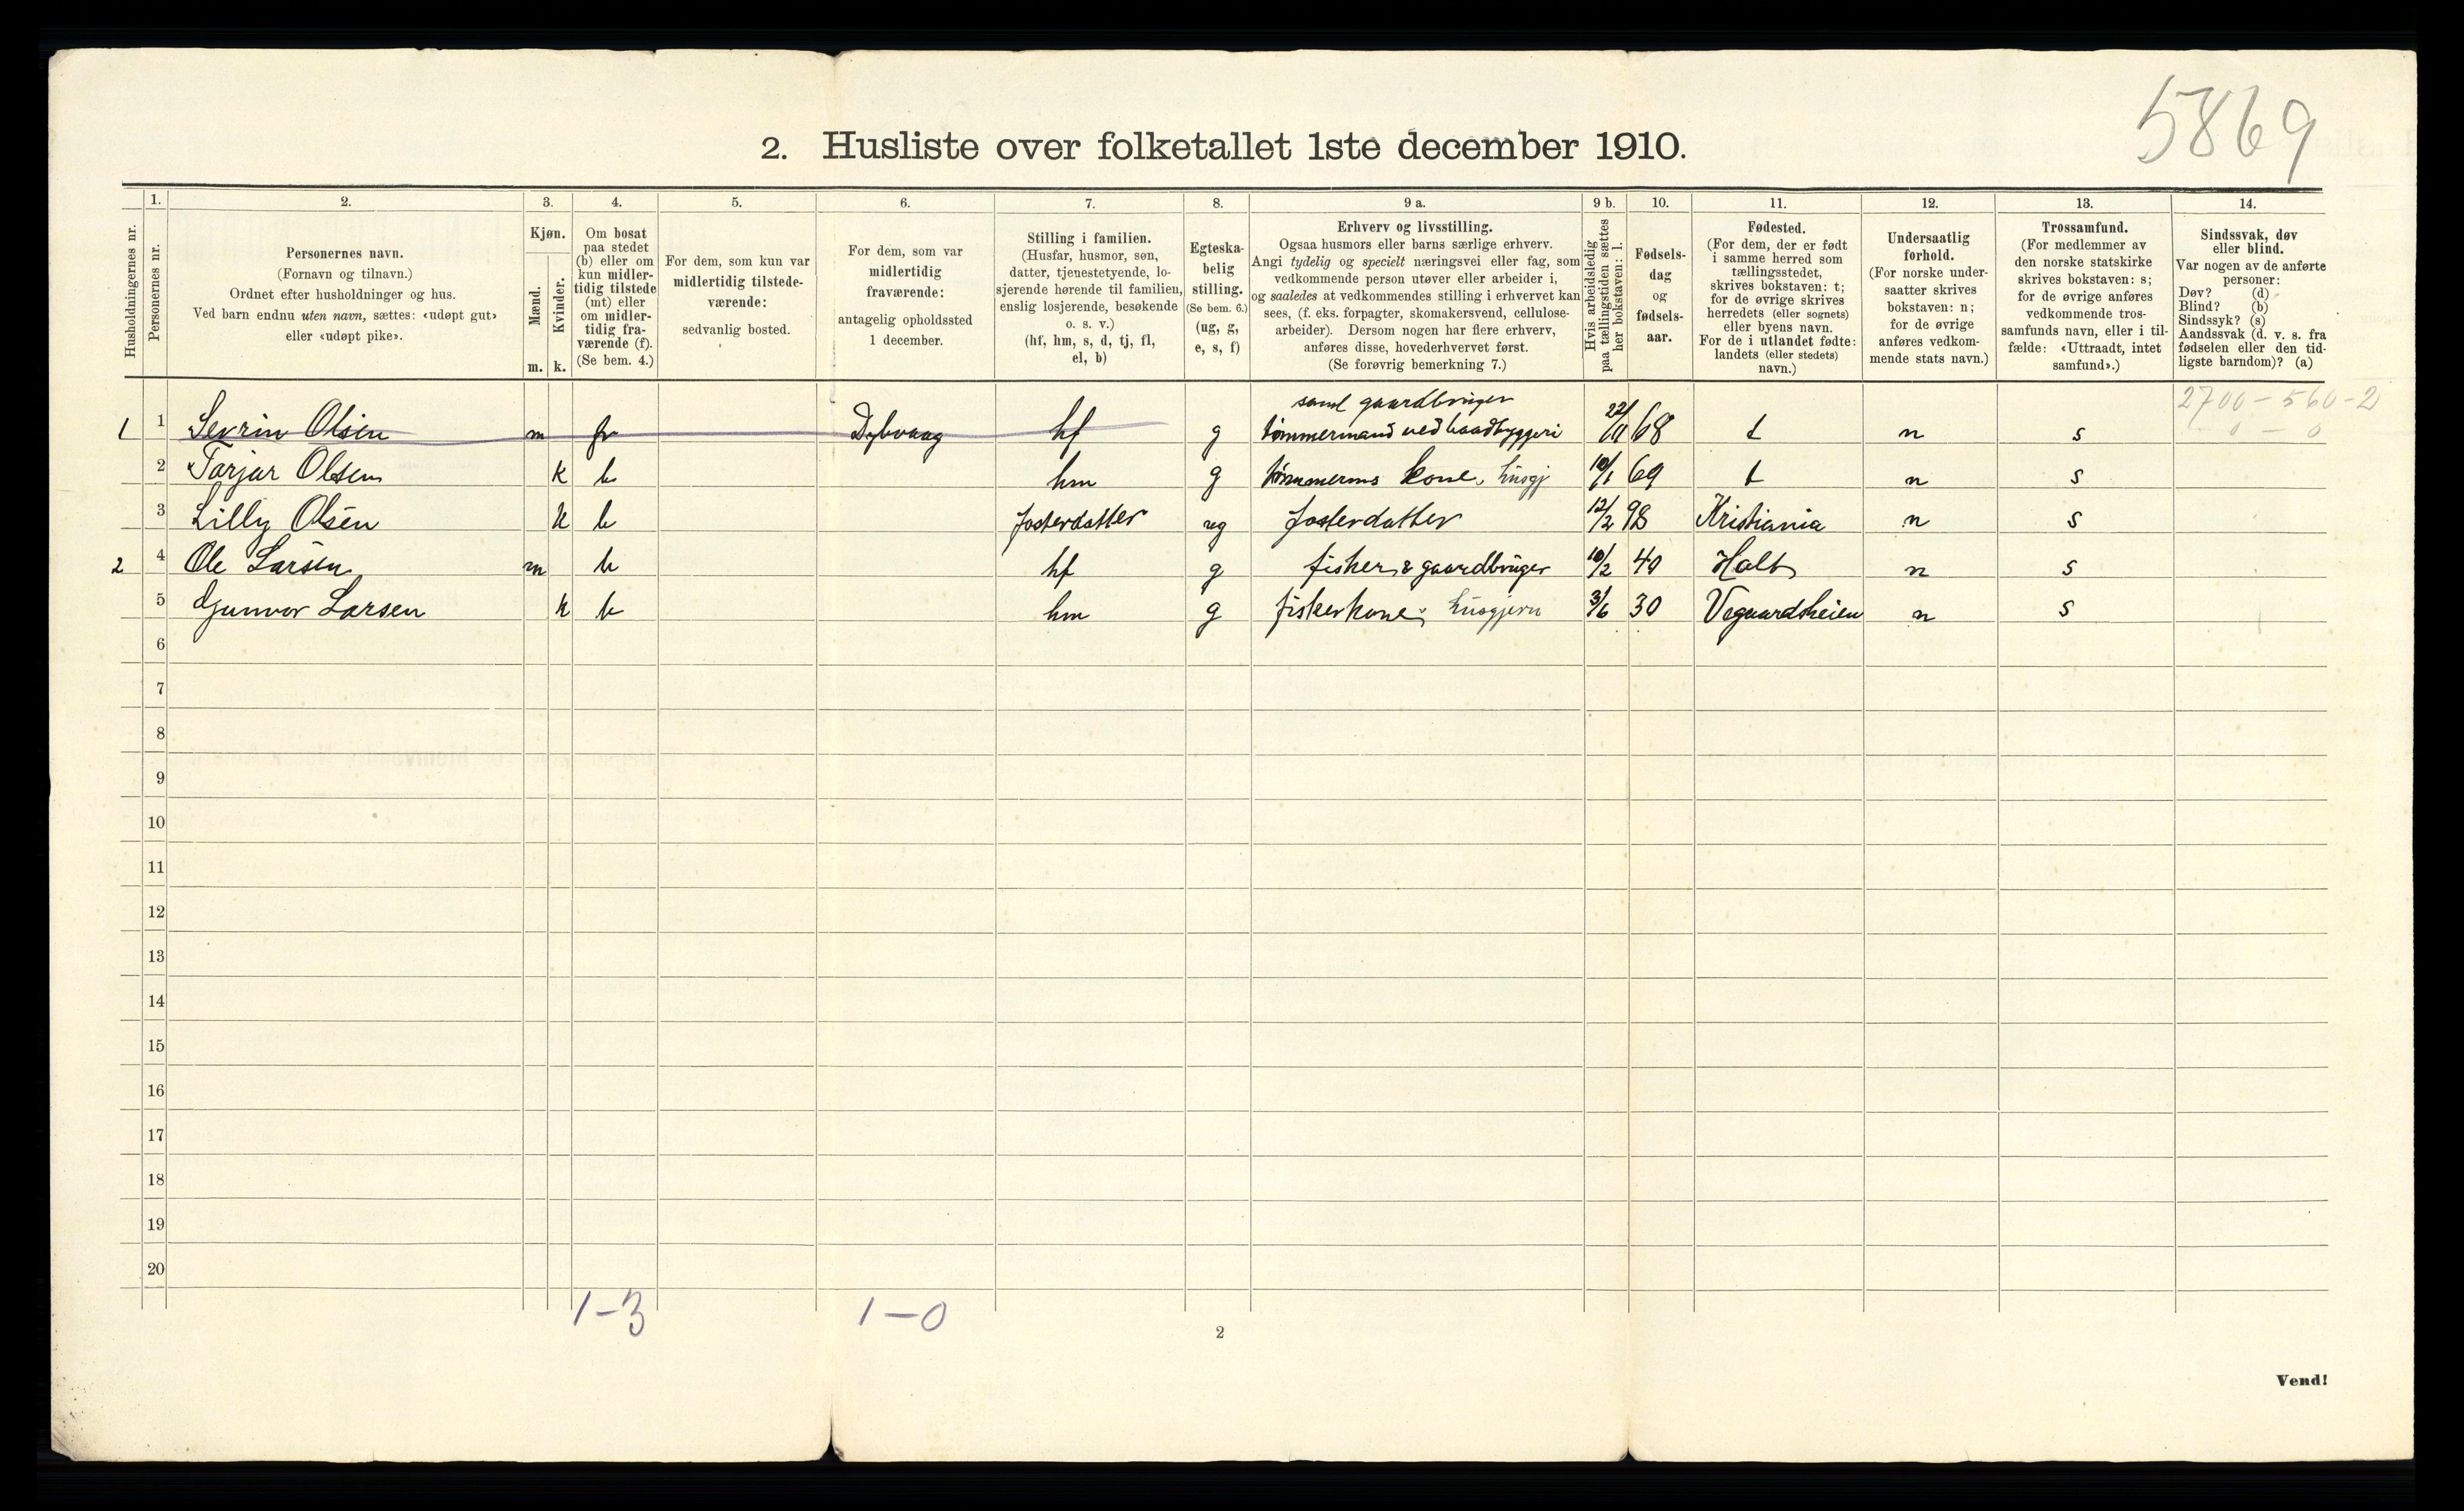 5869
2. Husliste over folketallet 1ste december 1910.
Husholdningernes nr.
1.
Personernes nr.
2.
Personernes navn.
(Fornavn og tilnavn.)
Ordnet efter husholdninger og hus.
Ved barn endnu uten navn, sættes: «udøpt gut»
eller «udøpt pike».
3.
Kjøn.
Mænd.
Kvinder.
m. k.
4.
Om bosat
paa stedet
(b) eller om
kun midler-
tidig tilstede
(mt) eller
om midler-
tidig fra-
værende (f).
(Se bem. 4.)
5.
For dem, som kun var
midlertidig tilstede-
værende:
sedvanlig bosted.
6.
For dem, som var
midlertidig
fraværende:
antagelig opholdssted
1 december.
7.
Stilling i familien.
(Husfar, husmor, søn,
datter, tjenestetyende, lo-
sjerende hørende til familien,
enslig losjerende, besøkende
o. s. v.)
(hf, hm, s, d, tj, fl,
el, b)
8.
Egteska-
belig
stilling.
(Se bem. 6.)
(ug, g,
e, s, f)
9 a.
Erhverv og livsstilling.
Ogsaa husmors eller barns særlige erhverv.
Angi tydelig og specielt næringsvei eller fag, som
vedkommende person utøver eller arbeider i,
og saaledes at vedkommendes stilling i erhvervet kan
sees, (f. eks. forpagter, skomakersvend, cellulose-
arbeider). Dersom nogen har flere erhverv,
anføres disse, hovederhvervet først.
(Se forøvrig bemerkning 7.)
9 b.
Hvis arbeidsledig
paa tællingstiden sættes
her bokstaven: l.
10.
Fødsels-
dag
og
fødsels-
aar.
11.
Fødested.
(For dem, der er født
i samme herred som
tællingsstedet,
skrives bokstaven: t;
for de øvrige skrives
herredets (eller sognets)
eller byens navn.
For de i utlandet fødte:
landets (eller stedets)
navn.)
12.
Undersaatlig
forhold.
(For norske under-
saatter skrives
bokstaven: n;
for de øvrige
anføres vedkom-
mende stats navn.)
13.
Trossamfund.
(For medlemmer av
den norske statskirke
skrives bokstaven: s;
for de øvrige anføres
vedkommende tros-
samfunds navn, eller i til-
fælde: «Uttraadt, intet
samfund».)
14.
Sindssvak, døv
eller blind.
Var nogen av de anførte
personer:
Døv? (d)
Blind? (b)
Sindssyk? (s)
Aandssvak (d. v. s. fra
fødselen eller den tid-
ligste barndom)? (a)
2700 - 560 - 2
0 - 0
samt gaardbruger
1 1 Sevrin Olsen m fr Dybvaag hf g tømmermand ved baadbyggeri 22/11 68 t n s
2 Tarjar Olsen k b hm g tømmerms kone. husgj 10/1 69 t n s
3 Lilly Olsen k b fosterdatter ug fosterdatter 12/2 98 Kristiania n s
2 4 Ole Larsen m b hf g fisker & gaardbruger 10/2 40 Holt n s
5 Gunvor Larsen k b hm g fiskerkone; husgjern 3/6 30 Vegaardsheien n s
6
7
8
9
10
11
12
13
14
15
16
17
18
19
20
1-3 1-0
2
Vend!